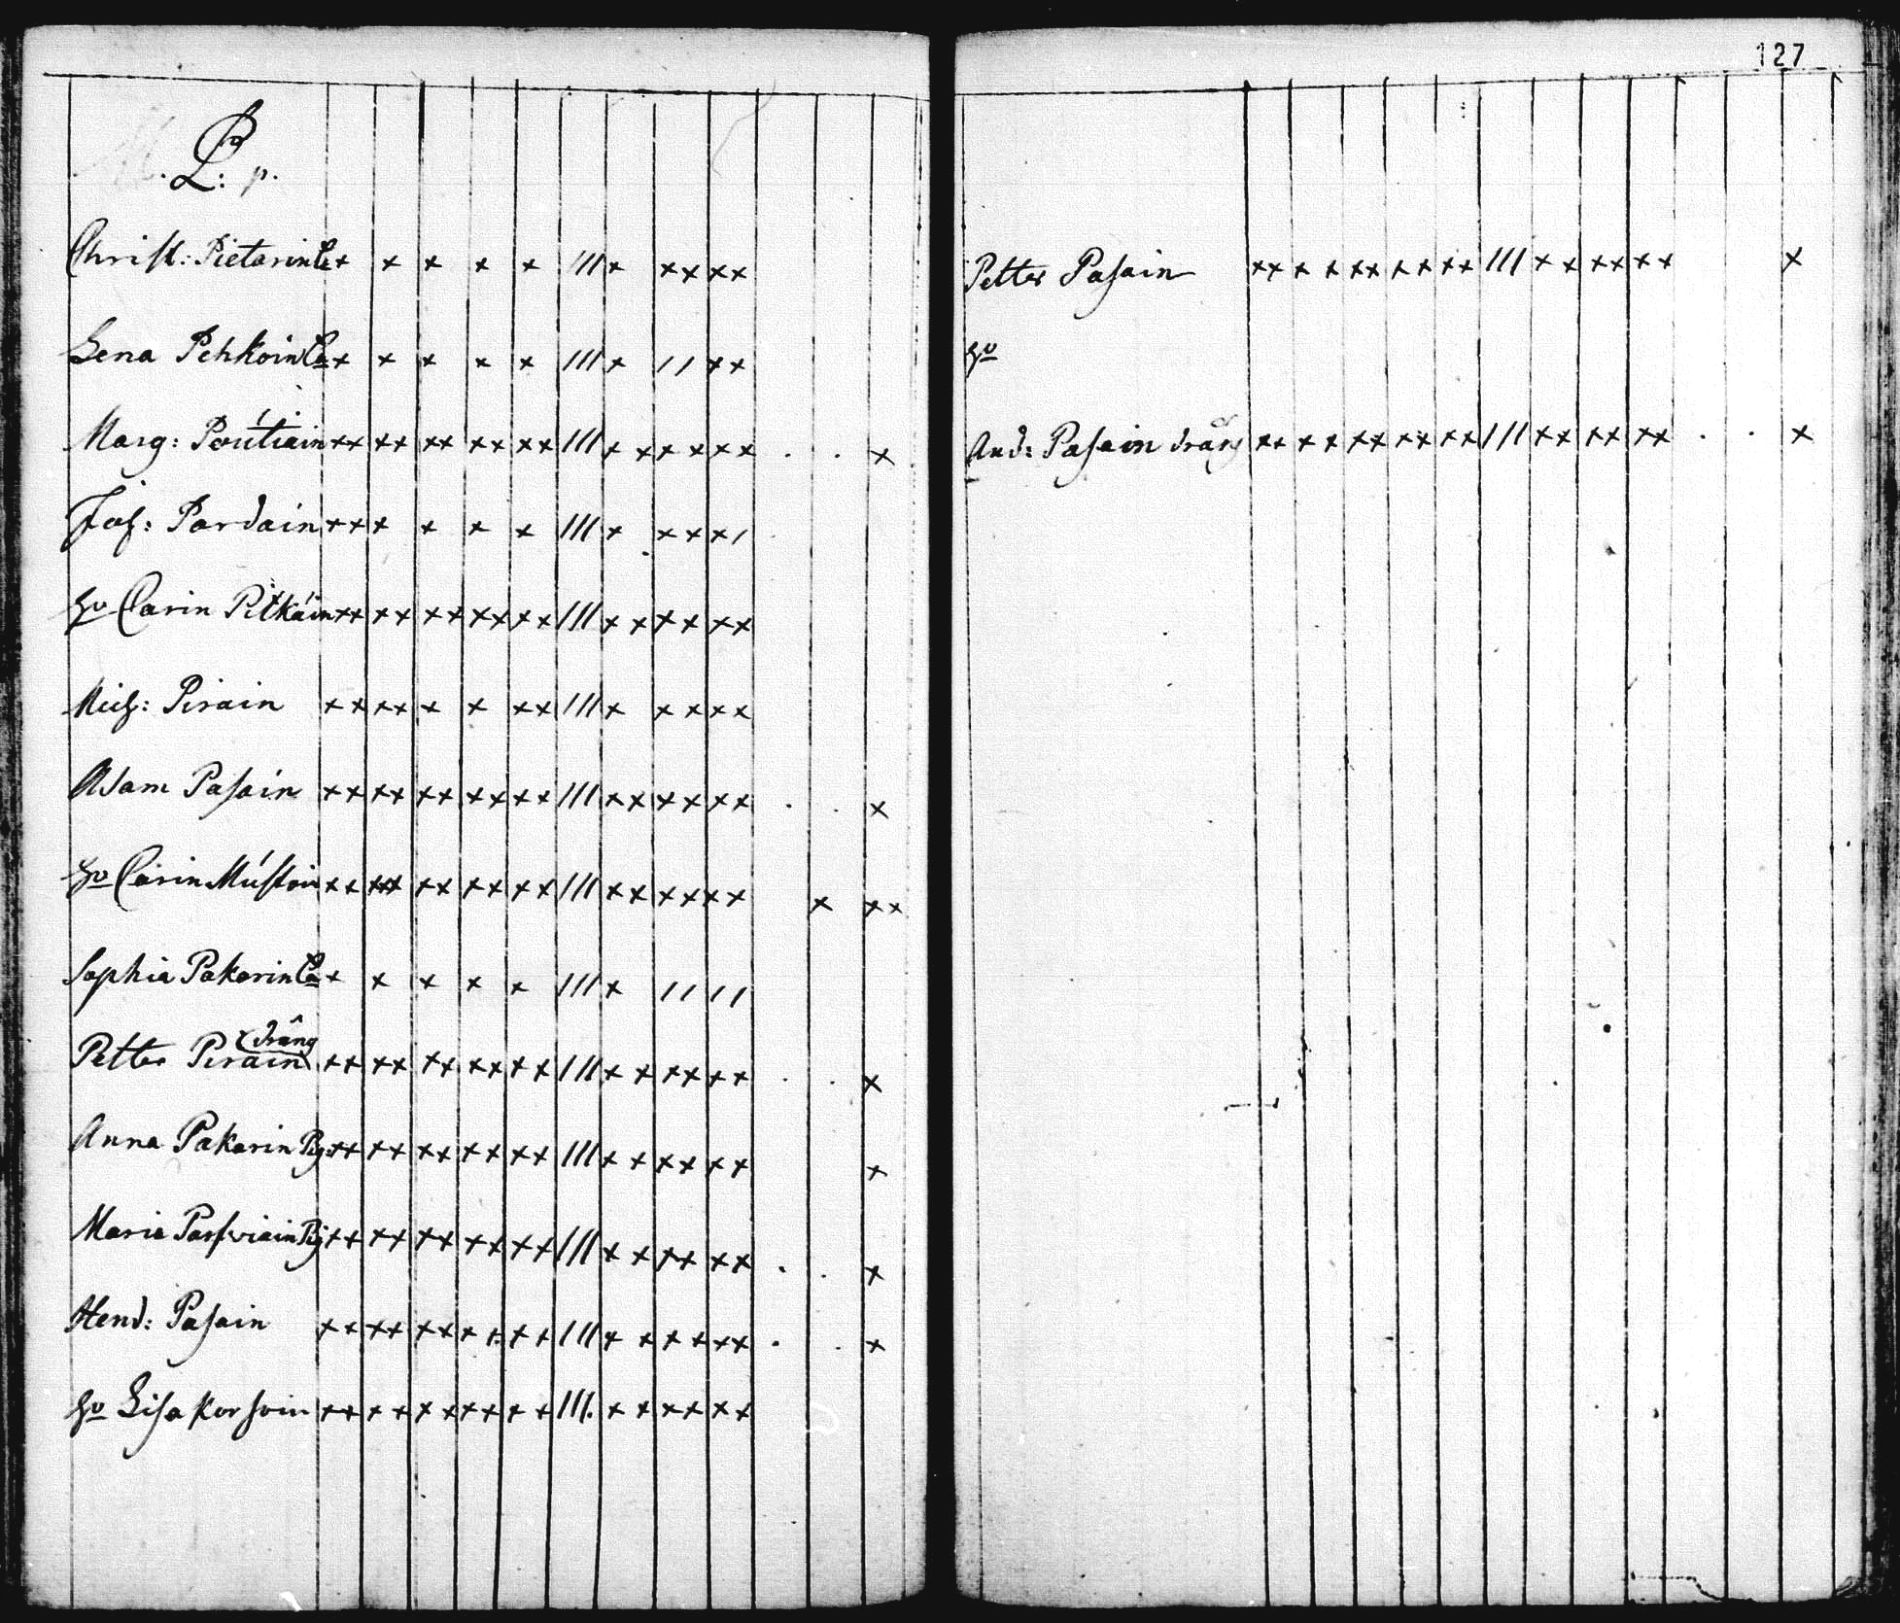 127
P: p.
Christ: Pietarin Ca + + + + + /// + ++ ++
Lena Pehkoin Ca + + + + + /// + // ++
Marg: Poutiain ++ ++ ++ ++ ++ /// ++ ++ ++ . . +
Joh: Pardain ++ + + + + /// + ++ +/
hu Carin Pitkäin ++ ++ ++ ++ ++ /// ++ ++ ++
Mich: Pirain ++ ++ + + ++ /// + ++ ++
Adam Pasain ++ ++ ++ ++ ++ /// ++ ++ ++ . . +
hu Carin Mustoin ++ +++ ++ ++ ++ /// ++ ++ ++ + ++
Sophia Pakarin Ca + + + + + /// + // //
drång
Petter Pirain ++ ++ ++ ++ ++ /// ++ ++ ++ . . +
Anna Pakarin Pig ++ ++ ++ ++ ++ /// ++ ++ ++ +
Maria Parfviain Pig ++ ++ ++ ++ ++ /// ++ ++ ++ . . +
Hend: Pasain ++ ++ ++ ++ ++ /// ++ ++ ++ . . +
hu Lisa Korhoin ++ ++ ++ ++ ++ /// ++ ++ ++
Petter Pasain ++ ++ ++ ++ ++ /// ++ ++ ++ +
hu
And: Pasain drång ++ ++ ++ ++ ++ /// ++ ++ ++ . . +